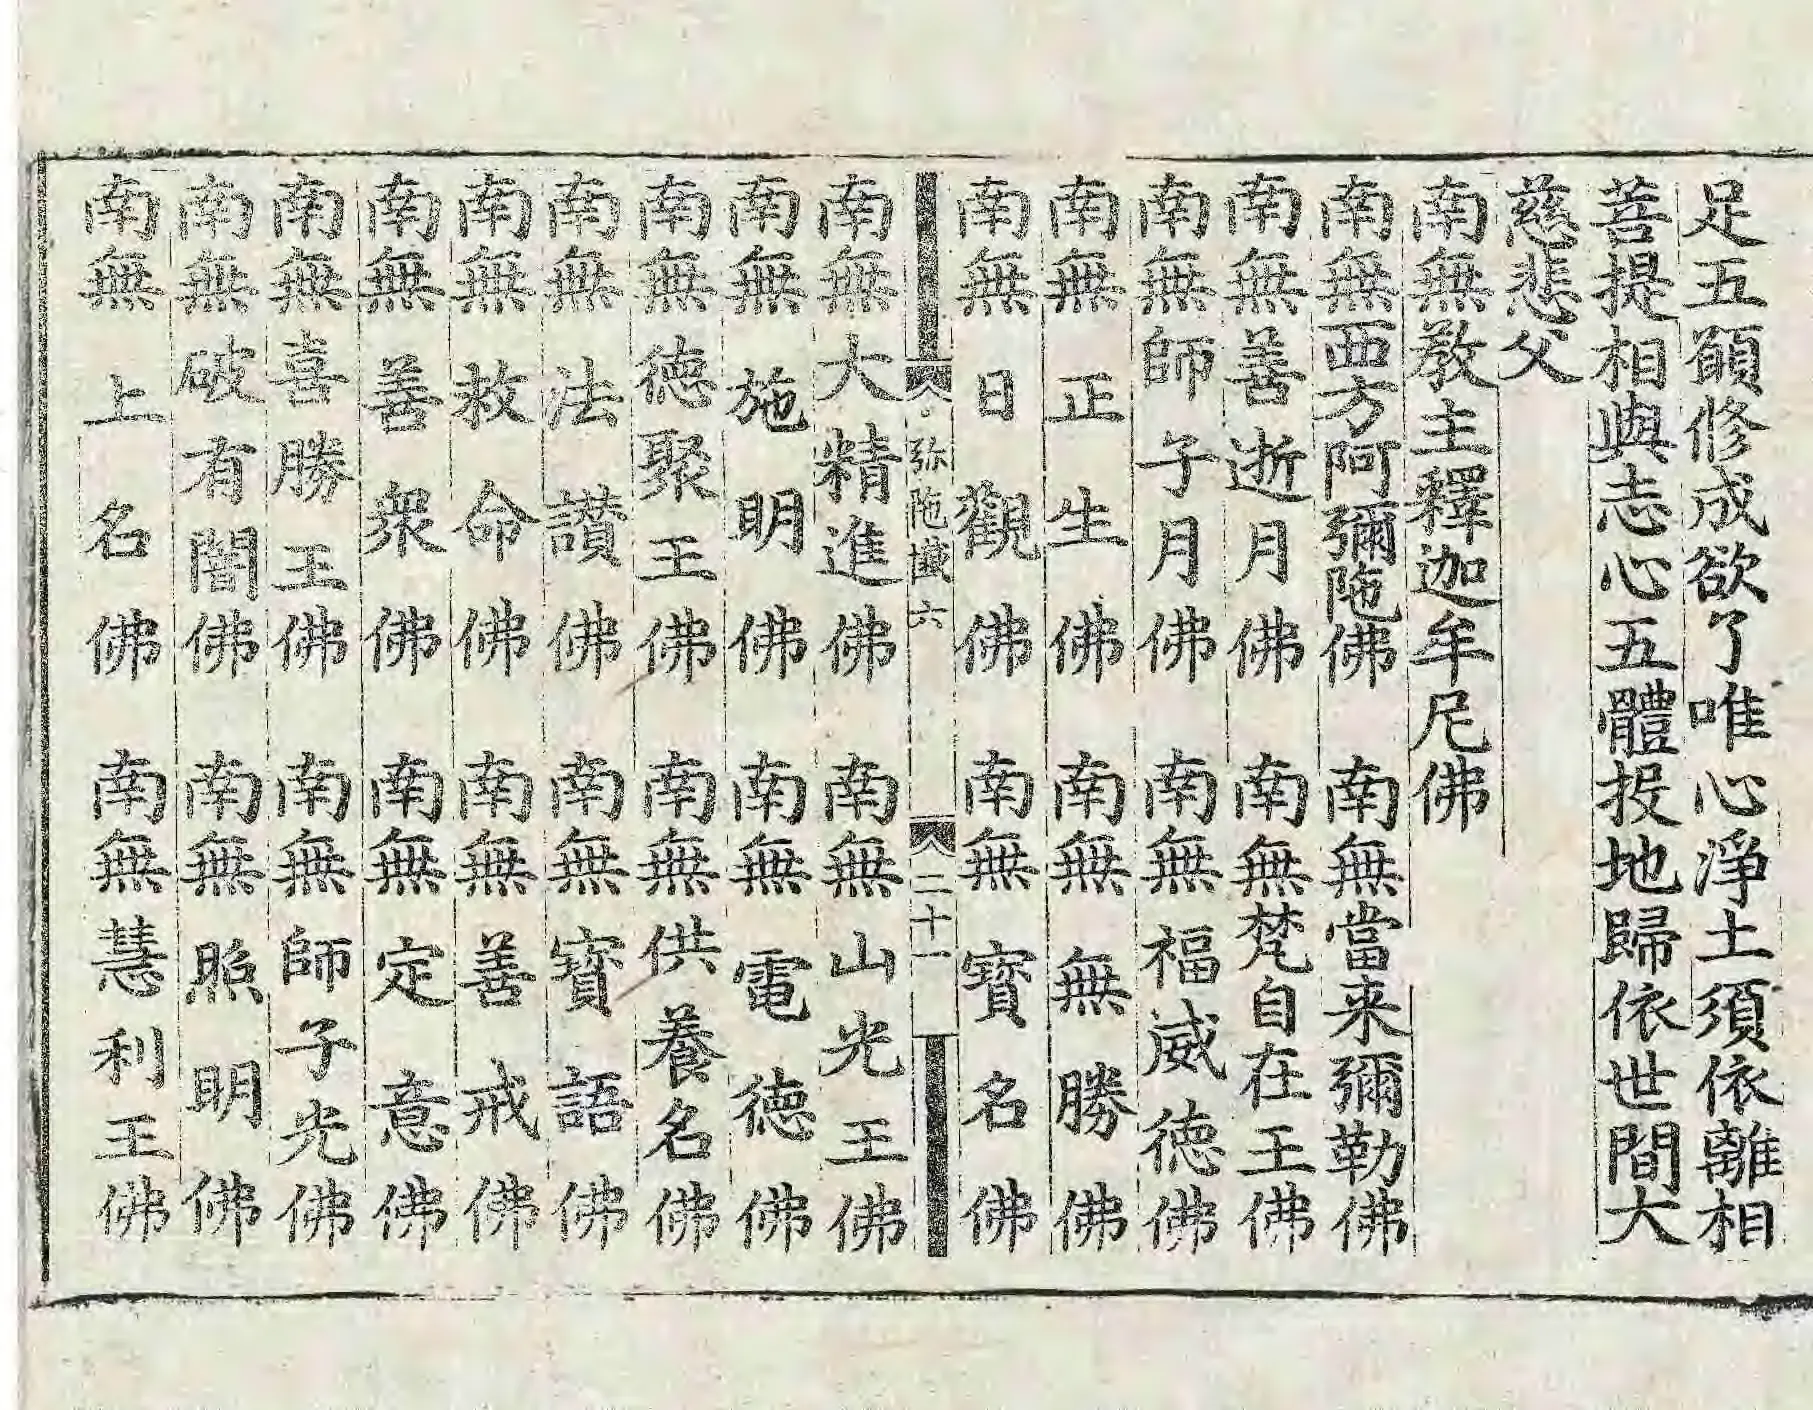 足五願修成欲了唯心淨土須依離相
菩提相與志心五體投地歸依世間大
慈悲父
南無教主釋迦牟尼佛
南無西方阿彌陁佛　南無當来彌勒佛
南無善逝月佛　南無梵自在王佛
南無師子月佛　南無福威德佛
南無正生佛　南無無勝佛
南無日觀佛　南無寶名佛
弥陁懴六　二十一
南無大精進佛　南無山光王佛
南無施明佛　南無電德佛
南無德聚王佛　南無供養名佛
南無法讃佛　南無寳語佛
南無救命佛　南無善戒佛
南無善衆佛　南無定意佛
南無喜勝王佛　南無師子光佛
南無破有闇佛　南無照明佛
南無上名佛　南無慧利王佛